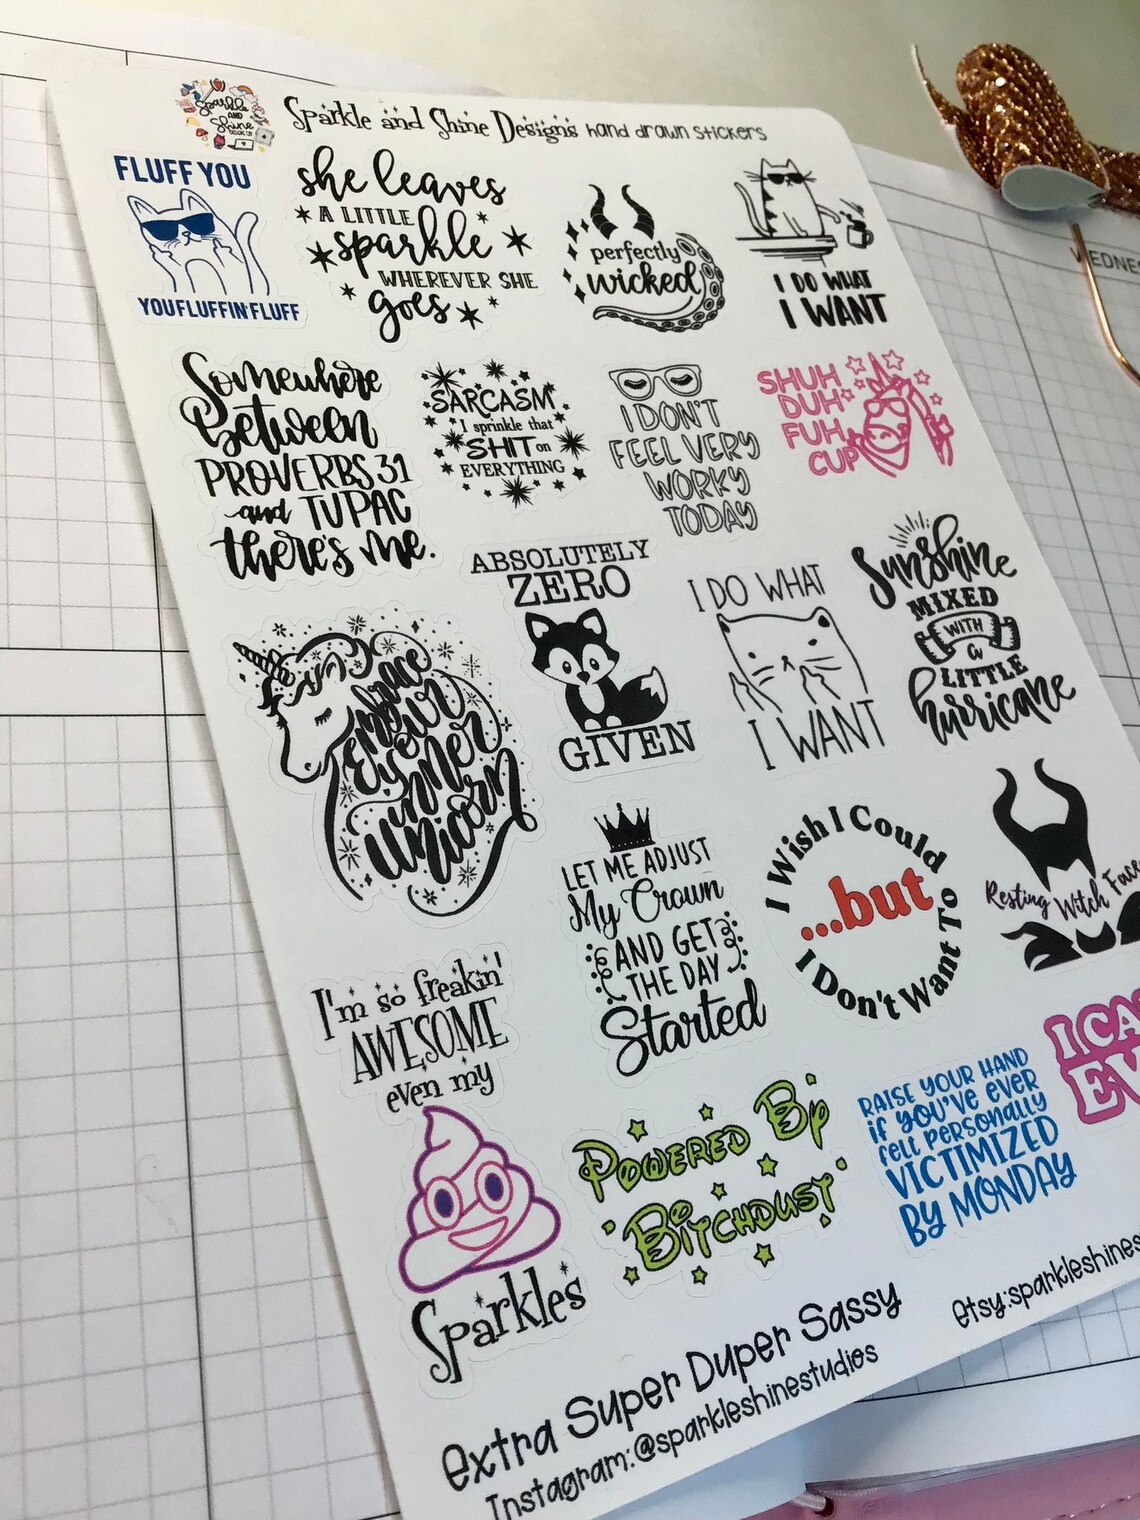 Sparkle
AND
Shine
Sparkle and Shine Designs hand drawn stickers
FLUFF YOU
YOU FLUFFIN' FLUFF
she leaves
A LITTLE
sparkle
WHEREVER SHE
goes
perfectly
wicked
I DO WHAT
I WANT
WEDNES
Somewhere
Between
PROVERBS 31
and TUPAC
there's me.
SARCASM
I sprinkle that
SHIT on
EVERYTHING
I DON'T
FEEL VERY
WORKY
TODAY
SHUH
DUH
FUH
CUP
Embrace
Your
inner
Unicorn
ABSOLUTELY
ZERO
GIVEN
I DO WHAT
I WANT
Sunshine
MIXED
WITH
a
LITTLE
hurricane
LET ME ADJUST
My Crown
AND GET
THE DAY
Started
I Wish I Could
...but
I Don't Want To
Resting Witch Face
I'm so freakin'
AWESOME
even my
Sparkles
POWERED BY
BITCHDUST
RAISE YOUR HAND
if YOU'VE EVER
fELT PERSONALLY
VICTIMIZED
BY MONDAY
I CA
EV
Extra Super Duper Sassy
Instagram:@sparkleshinestudios
etsy:sparkleshines